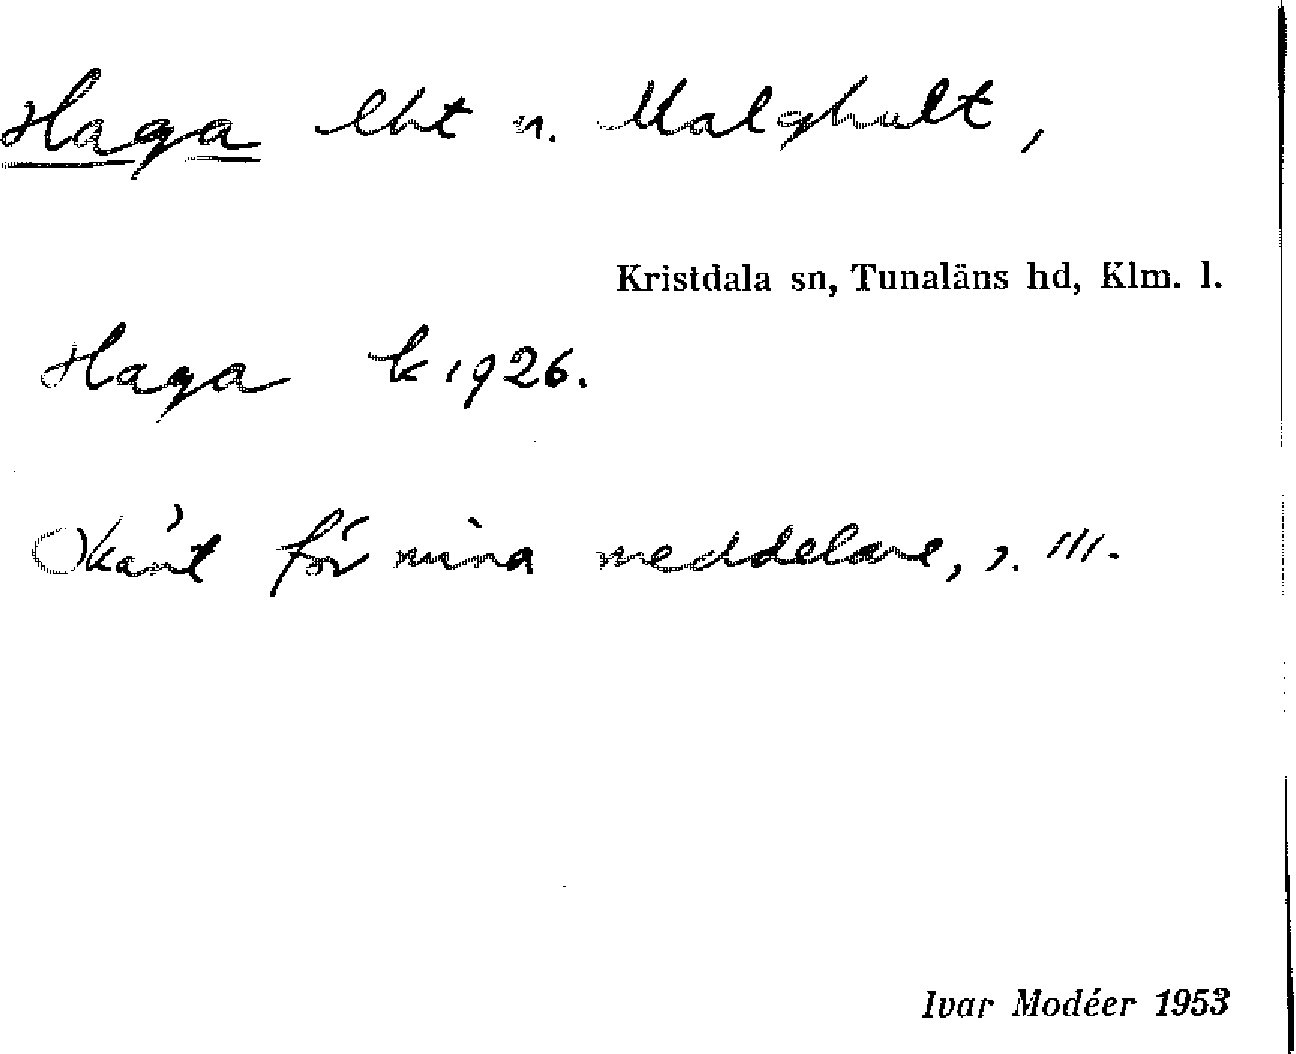 Haga lht n. Malghult,
Kristdala sn, Tunaläns hd, Klm. l.
Haga k 1926.
Okänt för mina meddelare, s. 111.
Ivar Modéer 1953